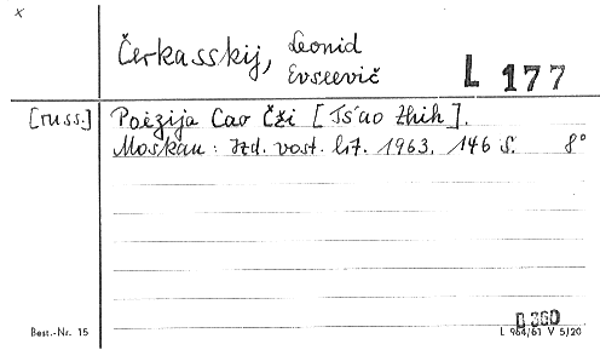 x
Čerkasskij, Leonid
Evseevič
L 177
[russ.] Poėzija Cao Čži [Ts'ao Chih].
Moskau: Izd. vost. lit. 1963. 146 S. 8°
Best.-Nr. 15
D 360
L 964/61 V 5/20